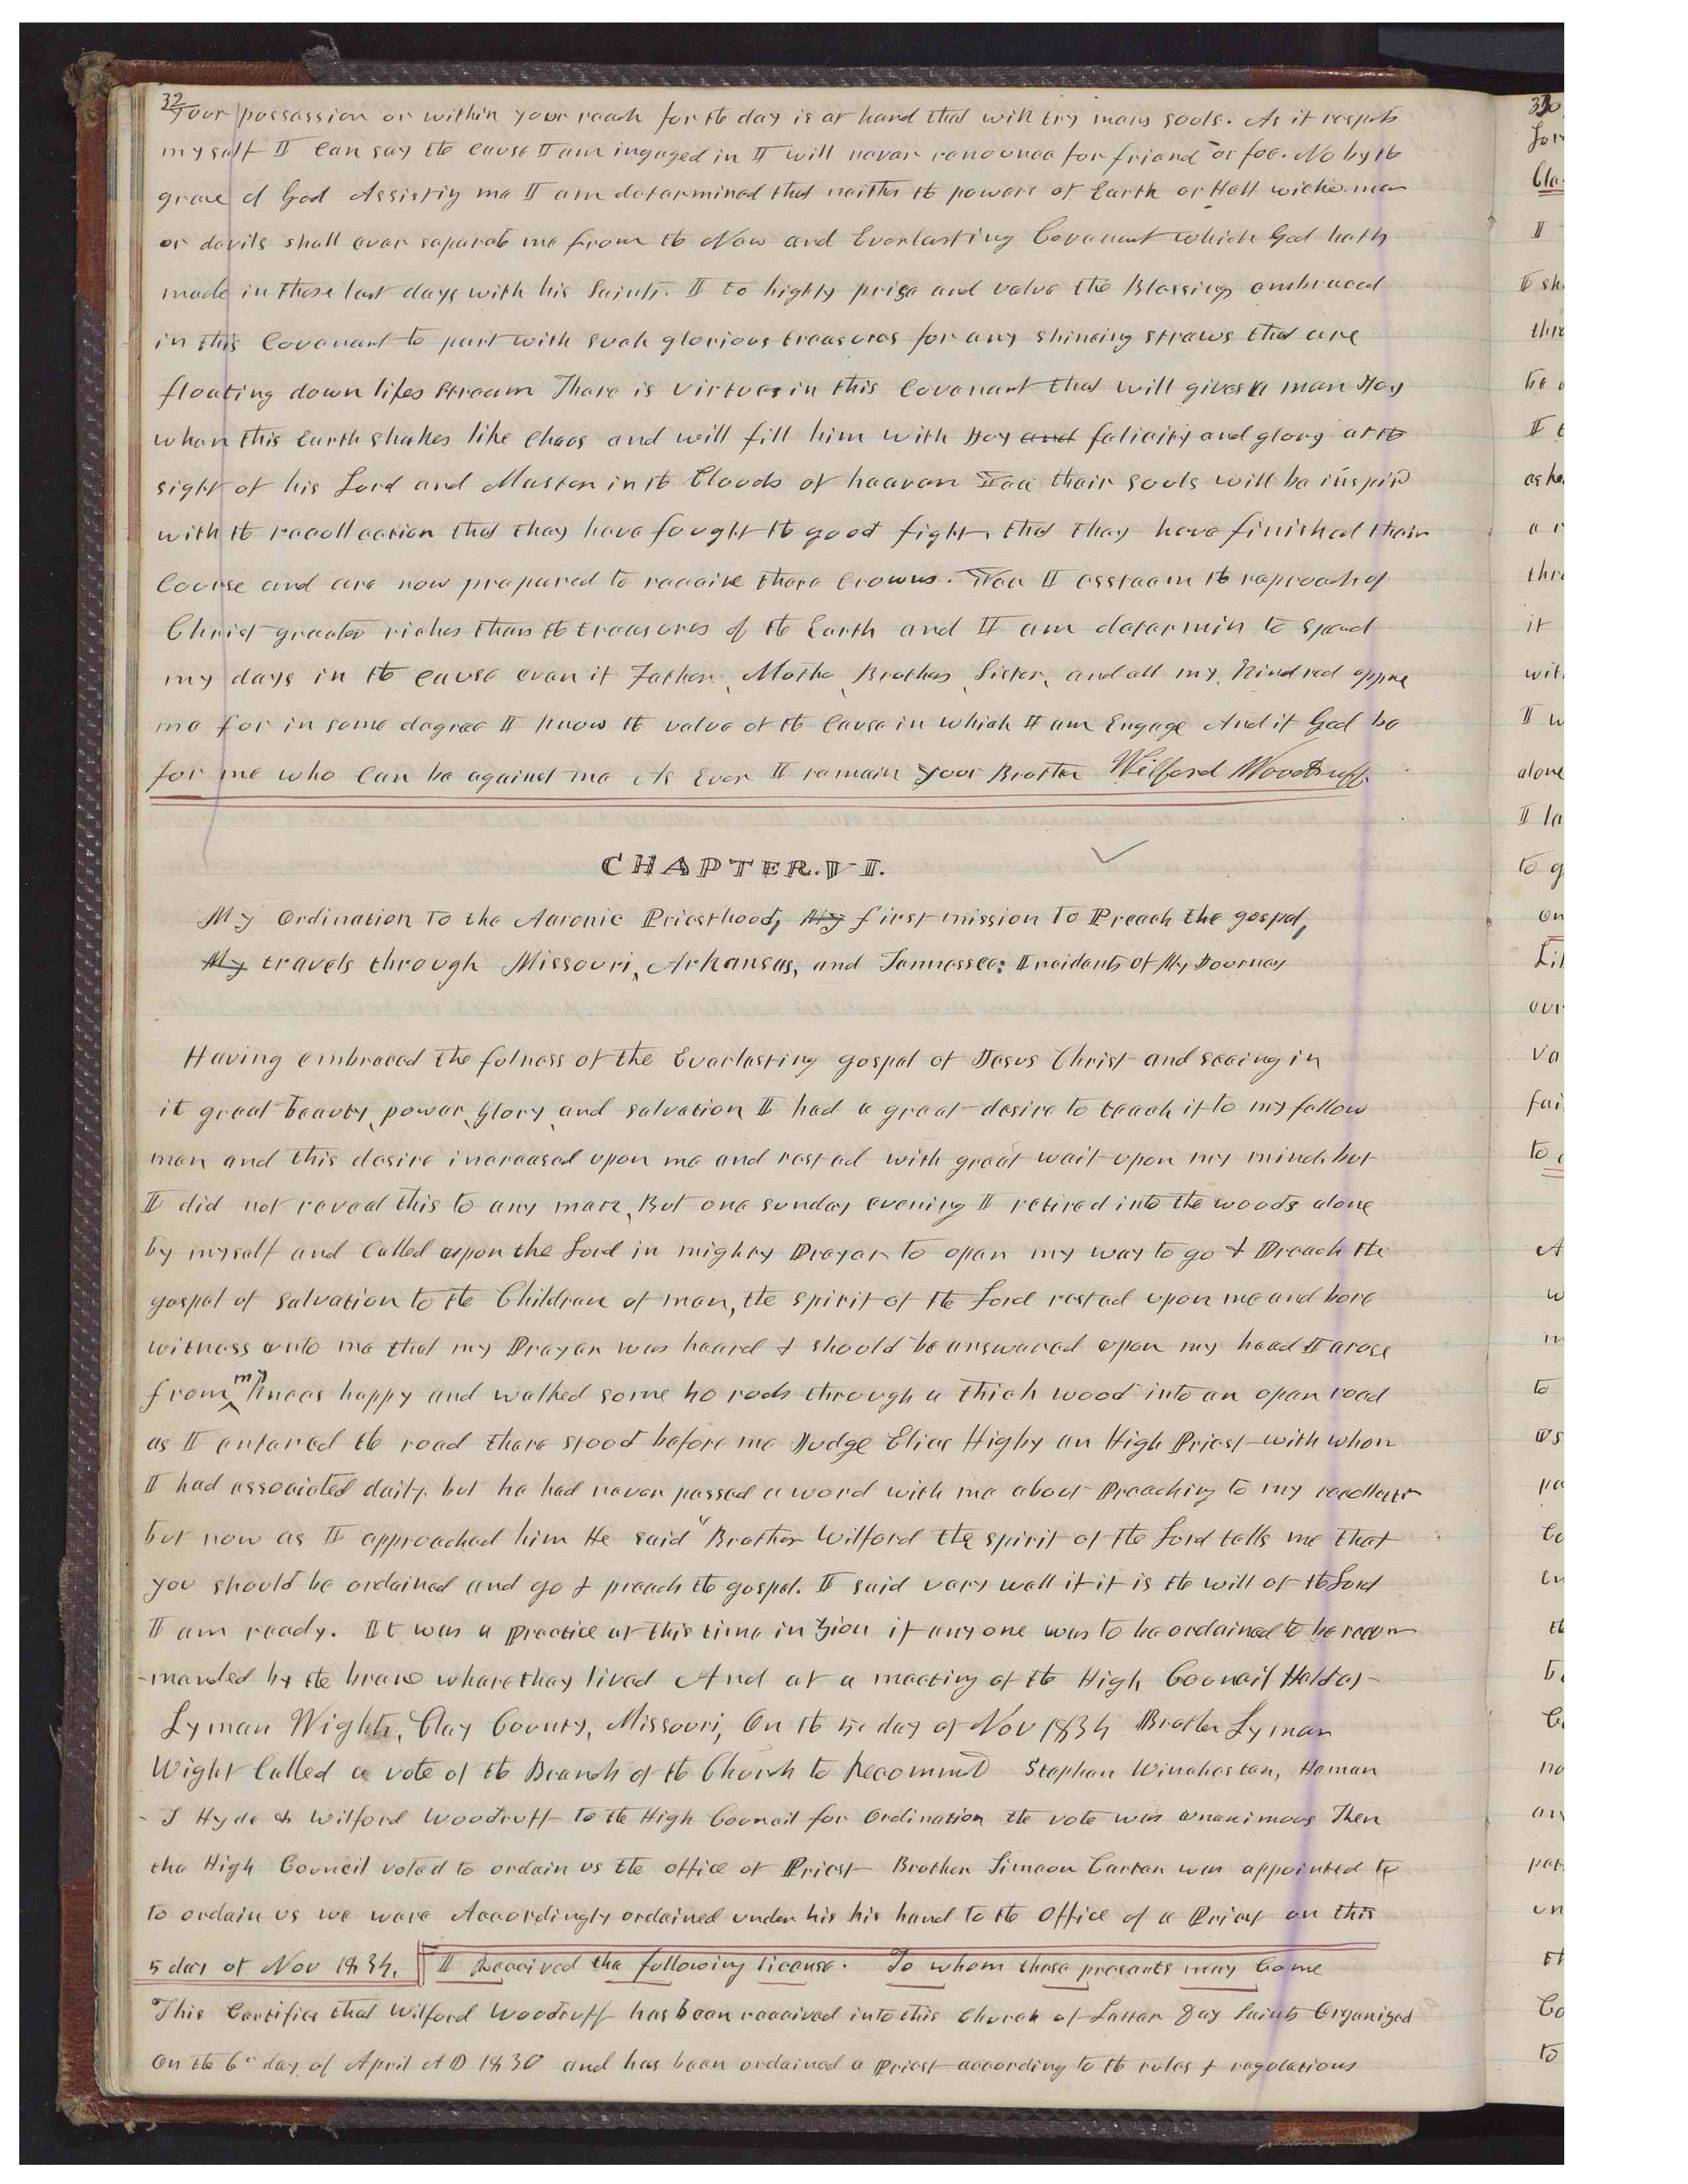 32
your possession or within your reach for the day is at hand that will try mans souls. As it respects
myself I can say the cause I am ingaged in I will never renounce for friend or foe. No by the
grace of God Assistig me I am determined that neither the powers of Earth or Hell wicke men
or devils shall ever separate me from the New and Everlasting Covenant which God hath
made in these last days with his Saints. I to highly prize and value the Blessings embraced
in this Covenant to part with such glorious treasures for any shineing straws that are
floating down lifes stream There is virtues in this Covenant that will gives a man Joy
when this Earth shakes like Chaos and will fill him with Joy and felicity and glory at the
sight of his Lord and Master in the Clouds of heaven Yea their souls will be inspird
with the recollection that they have fought the good fight, that they have finished their
Course and are now prepared to receive there Crowns. Yea I essteem the reproach of
Christ greater riches than the treasures of the Earth and I am determin to spend
my days in the cause even if Father, Mothe, Brothers, Sister, and all my Kindred oppose
me for in some degree I know the value of the Cause in which I am Engage And if God be
for me who can be against me As Ever I remain your Brother Wilford Woodruff.
CHAPTER. VI.
My Ordination to the Aaronic Priesthood, My first mission to Preach the gospel,
My travels through Missouri, Arkansas, and Tennessee: Incidents of My Journey
Having embraced the fulness of the Everlasting gospel of Jesus Christ and seeing in
it great beauty, power, glory, and salvation I had a great desire to teach it to my fellow
men and this desire increased upon me and rested with great wait upon my mind but
I did not reveal this to any man, But one sunday evening I retired into the woods alone
by myself and Called upon the Lord in mighty Prayer to open my way to go & Preach the
gospel of salvation to the Children of men, the spirit of the Lord rested upon me and bore
witness unto me that my Prayer was heard & should be answered upon my head I arose
from my knees happy and walked some 40 rods through a thick wood into an open road
as I entered the road there stood before me Judge Elias Higby an High Priest with whom
I had associated daily but he had never passed a word with me about Preaching to my recollect
but now as I approached him He said "Brother Wilford the spirit of the Lord tells me that
you should be ordained and go & preach the gospel. I said very well if it is the will of the Lord
I am ready. It was a practice at this time in Zion if any one was to be ordained to be recom
-mended by the branc where they lived And at a meeting of the High Council Held at
Lyman Wights, Clay County, Missouri, On the 5th day of Nov 1834 Brother Lyman
Wight Called a vote of the Branch of the Church to Recommend Stephen Winchester, Heman
- T Hyde & Wilford Woodruff to the High Council for Ordination the vote was unanimous Then
the High Council voted to ordain us the office of Priest Brother Simeon Carter was appointed to
to ordain us we were Accordingly ordained under his his hand to the Office of a Priest on this
5 day of Nov 1834. I Received the following license. To whom these presents may Come
This Certifies that Wilford Woodruff has been received into this Church of Latter Day Saints Organized
On the 6th day of April A D 1830 and has been ordained a Priest according to the rules & regulations